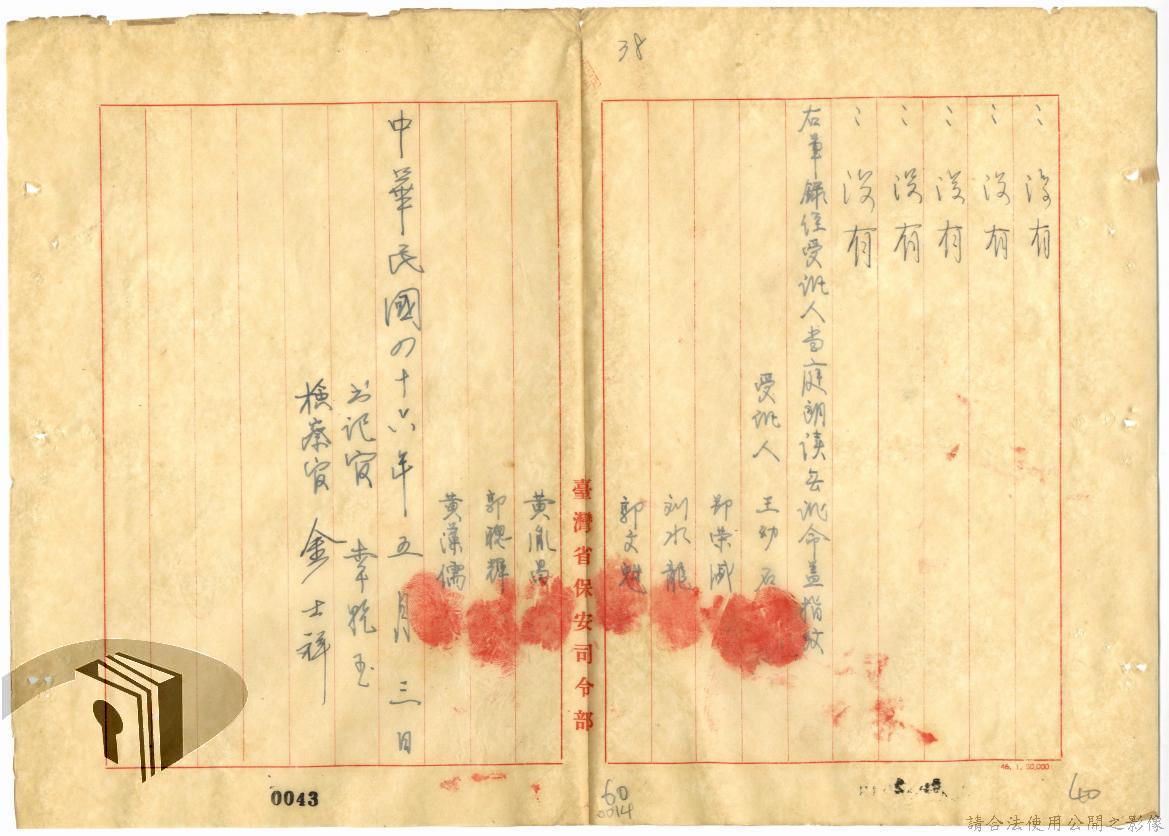 38
〻沒有
〻沒有
〻沒有
〻沒有
〻沒有
右筆錄經受訊人当庭朗读無訛命盖指紋
受訊人 王幼石
鄭荣咸
刘水龍
郭文魁
臺灣省保安司令部
黄胤昌
郭聰輝
黄藻儒
中華民國四十六年五月三日
书记官 李
检察官 金士祥
46. 1. 50,000
0043
60
0014
40
請合法使用公開之影像